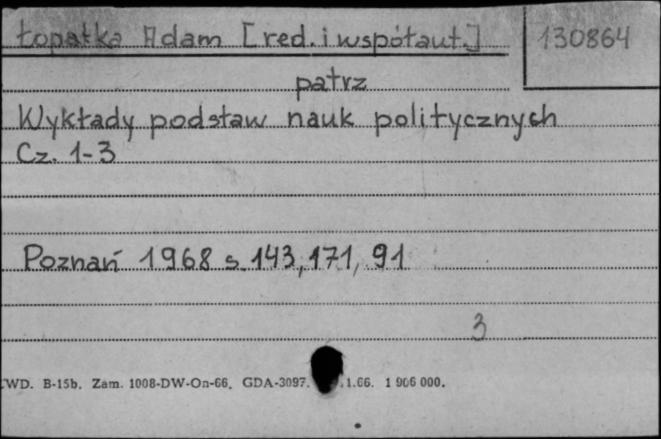 Łopatka Adam [red. i współaut.] 130864
patrz
Wykłady podstaw nauk politycznych
Cz. 1-3
Poznań 1968 s. 143, 171, 91
3
WD. B-15b. Zam. 1008-DW-On-66. GDA-3097. .1.66. 1 906 000.